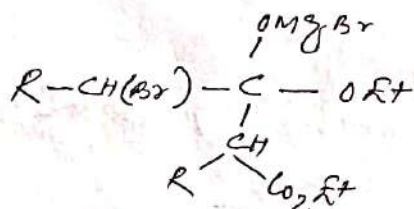 OMgBr
R-CH(Br)-C-OEt
CH
R CO2Et